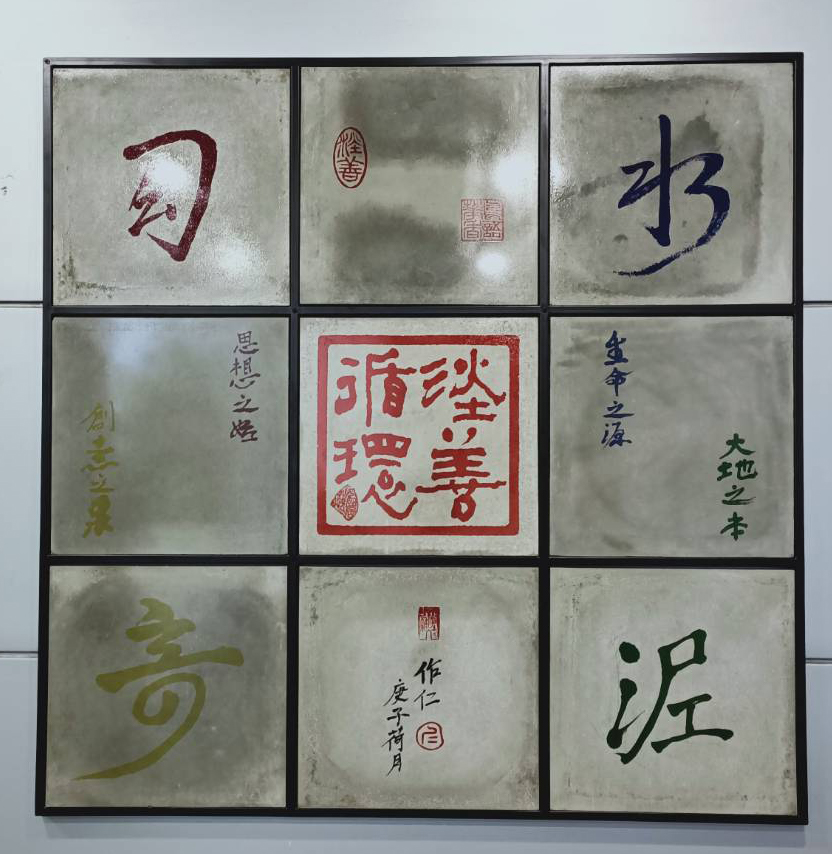 水
生命之源
大地之本
泥
善
善
循環
作仁
庚子荷月
思想之始
創意之泉
奇